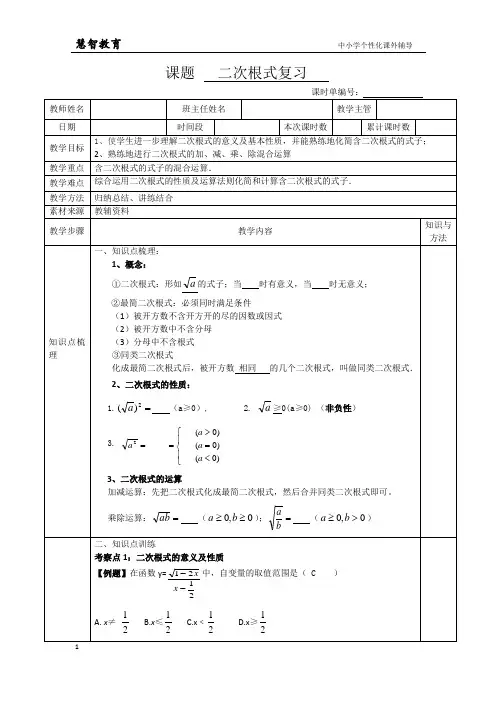 慧智教育 中小学个性化课外辅导
课题 二次根式复习
课时单编号：
教师姓名 班主任姓名 教学主管
日期 时间段 本次课时数 累计课时数
教学目标 1、使学生进一步理解二次根式的意义及基本性质，并能熟练地化简含二次根式的式子；
2、熟练地进行二次根式的加、减、乘、除混合运算
教学重点 含二次根式的式子的混合运算．
教学难点 综合运用二次根式的性质及运算法则化简和计算含二次根式的式子．
教学方法 归纳总结、讲练结合
素材来源 教辅资料
教学步骤 教学内容 知识与方法
知识点梳理
一、知识点梳理：
1、概念：
①二次根式：形如√a的式子；当__时有意义，当__时无意义；
②最简二次根式：必须同时满足条件
（1）被开方数不含开方开的尽的因数或因式
（2）被开方数中不含分母
（3）分母中不含根式
③同类二次根式
化成最简二次根式后，被开方数 相同 的几个二次根式，叫做同类二次根式．
2、二次根式的性质：
1. (√a)² = ___ （a≥0）， 2. √a≥0(a≥0) （非负性）
3. √a² = = { (a > 0)
(a = 0)
(a < 0)
3、二次根式的运算
加减运算：先把二次根式化成最简二次根式，然后合并同类二次根式即可。
乘除运算：√ab = ___ （a ≥ 0, b ≥ 0）；√(a/b) = ___ （a ≥ 0, b > 0）
二、知识点训练
考察点1：二次根式的意义及性质
【例题】在函数y=√(1－2x)/(x－1/2)中，自变量的取值范围是（ C ）
A. x≠ 1/2 B.x≤1/2 C.x﹤1/2 D.x≥1/2
1